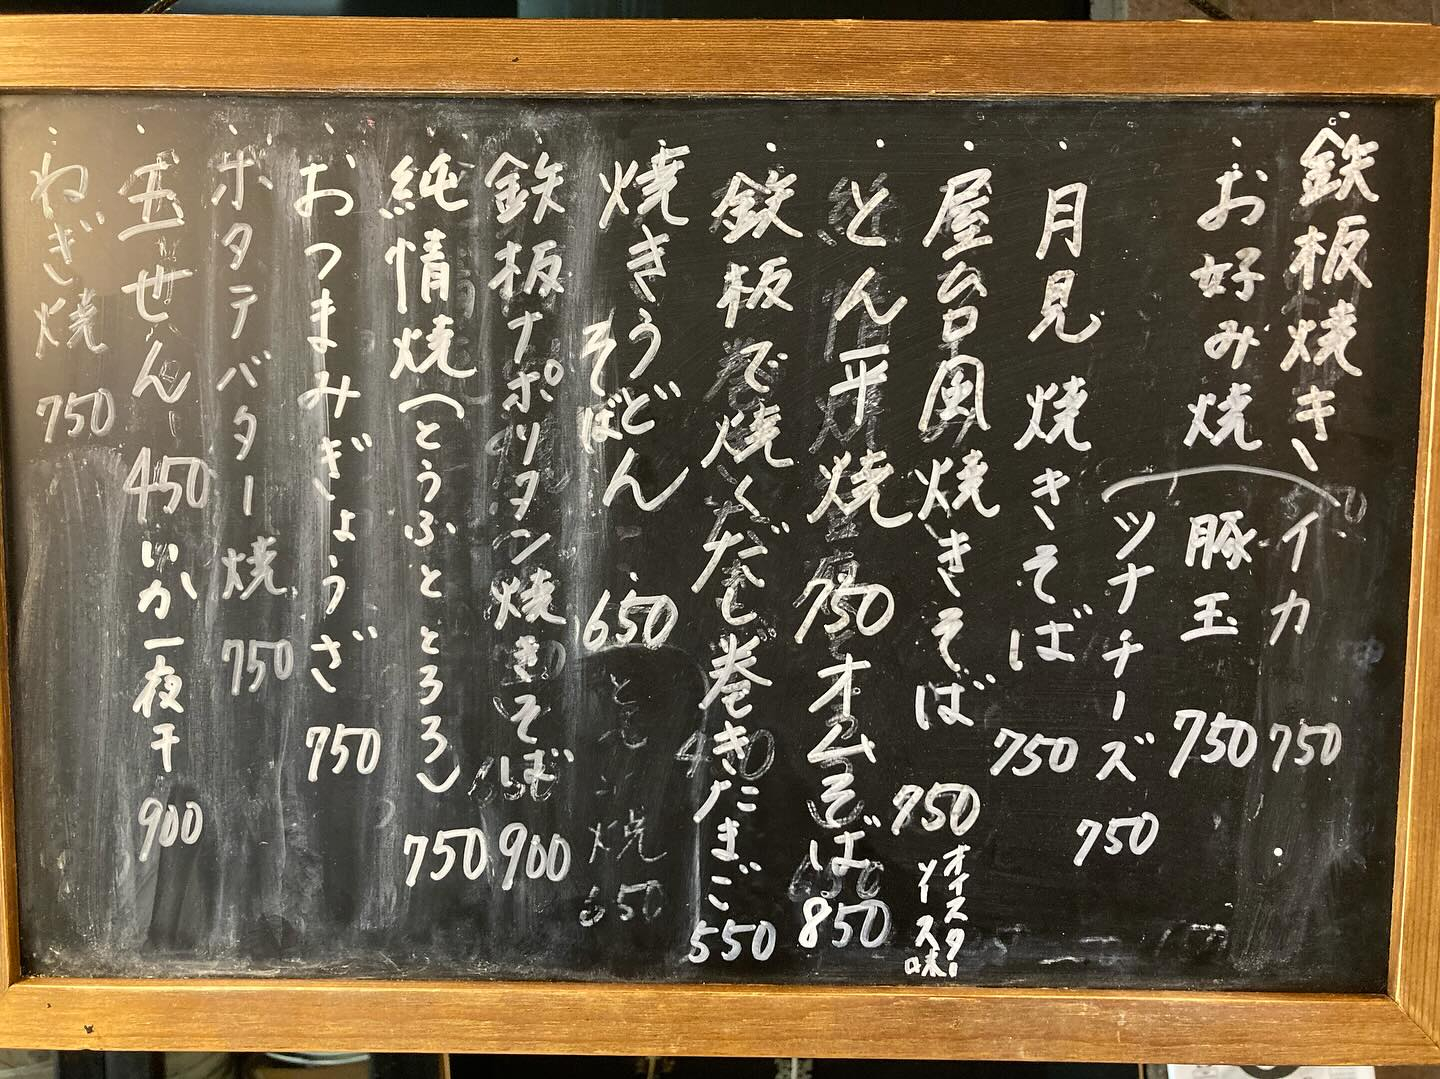 ・鉄板焼き、イカ 750
・お好み焼 豚玉 750
ツナチーズ 750
・月見 焼きそば 750
屋台風焼きそば 750 オイスターソース味
・とん平焼 750 オムそば 850
・鉄板で焼くだし巻きたまご 550
・焼きうどん そば 650
・鉄板ナポリタン焼きそば 900
・純情焼(とうふととろろ) 750
・おつまみぎょうざ 750
・ポタテバター焼 750
・玉せん 450 いか一夜干 900
・ねぎ焼 750